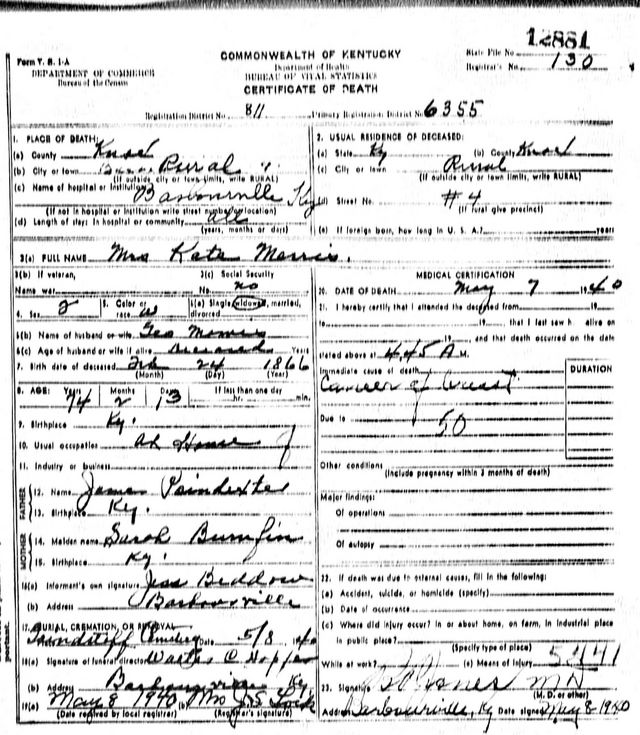 12881
Form V. S. 1-A
DEPARTMENT OF COMMERCE
Bureau of the Census
COMMONWEALTH OF KENTUCKY
Department of Health
BUREAU OF VITAL STATISTICS
CERTIFICATE OF DEATH
State File No.
Registrar's No. 130
Registration District No. 811 Primary Registration District No. 6355
1. PLACE OF DEATH:
(a) County Knox
(b) City or town Rural
(If outside city or town limits, write RURAL)
(c) Name of hospital or institution Barbourville Ky
(If not in hospital or institution write street number or location)
(d) Length of stay: In hospital or community all
(years, months or days)
2. USUAL RESIDENCE OF DECEASED:
(a) State Ky (b) County Knox
(c) City or town Rural
(If outside city or town limits, write RURAL)
(d) Street No. #4
(If rural give precinct)
(e) If foreign born, how long in U. S. A.? years
3(a) FULL NAME Mrs Kate Morris.
3(b) If veteran, 3(c) Social Security
Name war No. no
4. Sex 5. Color or race w 6(a) Single, widowed, married, divorced
6(b) Name of husband or wife Geo Morris
6(c) Age of husband or wife if alive deceased Years
7. Birth date of deceased Feb 24 1866
(Month) (Day) (Year)
8. AGE: Years 74 Months 2 Days 13 If less than one day hr. min.
9. Birthplace Ky.
10. Usual occupation at House
11. Industry or business
FATHER
12. Name James Poindexter
13. Birthplace Ky.
MOTHER
14. Maiden name Sarah
15. Birthplace Ky.
16(a) Informant's own signature Jess Beddow
(b) Address Barbourville
17. BURIAL, CREMATION, OR REMOVAL
Cemetery Date 5/8 1940
18(a) Signature of funeral director Walter C Hopper
(b) Address Barbourville Ky
19(a) May 8 1940 (b) Mrs J.S. Lock
(Date received by local registrar) (Registrar's signature)
MEDICAL CERTIFICATION
20. DATE OF DEATH May 7 1940
21. I hereby certify that I attended the deceased from 19
to 19, that I last saw h alive on
19, and that death occurred on the date
stated above at 4 45 A M.
Immediate cause of death DURATION
Cancer of breast
Due to 50
Other conditions
(Include pregnancy within 3 months of death)
Major findings:
Of operations
Of autopsy
22. If death was due to external causes, fill in the following:
(a) Accident, suicide, or homicide (specify)
(b) Date of occurrence
(c) Where did injury occur? In or about home, on farm, in industrial place
in public place?
(Specify type of place)
While at work? (e) Means of injury 5441
23. Signature Jones M D
(M. D. or other)
Address Barbourville, Ky Date signed May 8-1940